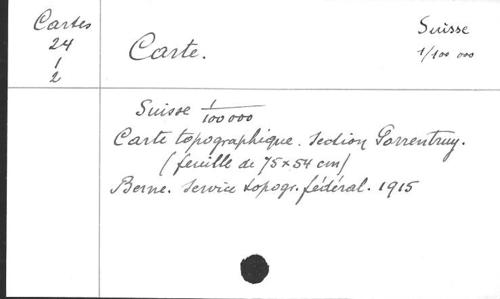 Cartes
24
1
2
Carte.
Suisse
1/100 000
Suisse 1/100 000
Carte topographique. Section Porrentruy.
(feuille de 75x54 cm)
Berne. Service topogr. fédéral. 1915